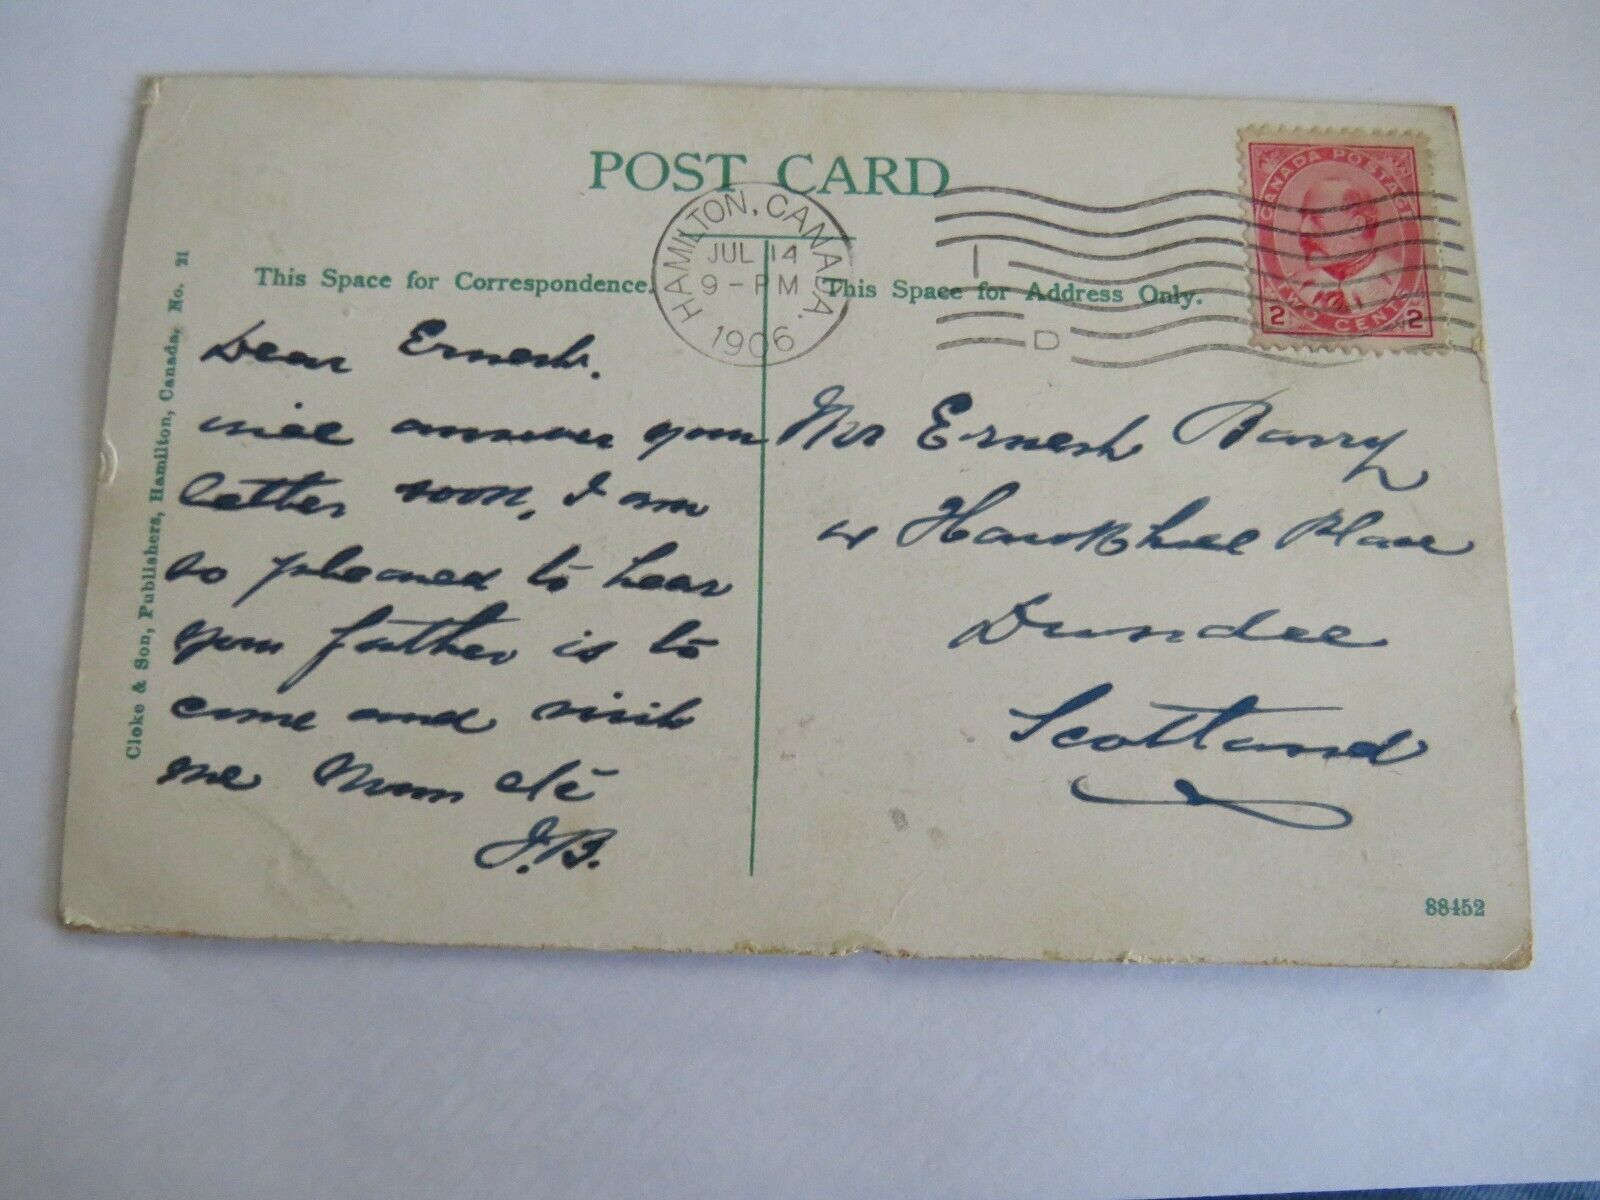 POST CARD
HAMILTON, CANADA.
JUL 14
9 - PM
1906
I
D
CANADA POSTAGE
2 TWO CENTS 2
This Space for Correspondence.
This Space for Address Only.
Cloke & Son, Publishers, Hamilton, Canada, No. 21
Dear Ernest.
answer your
letter soon, I am
so pleased to hear
your father is to
come and visit
me Mum etc
J.B.
Mr Ernest Barry
4 Place
Dundee
Scotland
88452